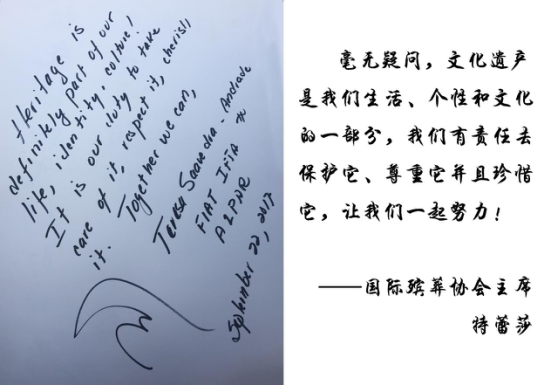 Heritage is
definitely part of our
life, identity, culture!
It is our duty to take
care of it, respect it, cherish
it. Together we can,
Teresa Saavedra - Andrade
FIAT IFTA
ALPAR
September 20, 2017
毫无疑问，文化遗产
是我们生活、个性和文化
的一部分，我们有责任去
保护它、尊重它并且珍惜
它，让我们一起努力！
——国际殡葬协会主席
特蕾莎